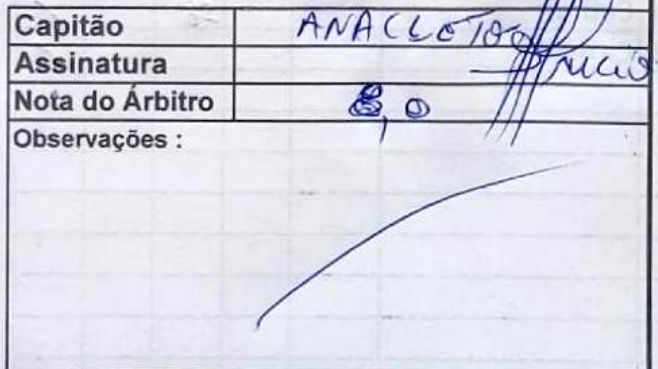 Capitão ANACLETO
Assinatura
Nota do Árbitro 8,0
Observações :